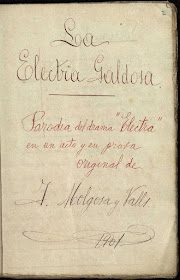 La
Electra Galdosa.
Parodia del drama "Electra"
en un acto y en prosa
original de
J. Molgosa y Valls
1901